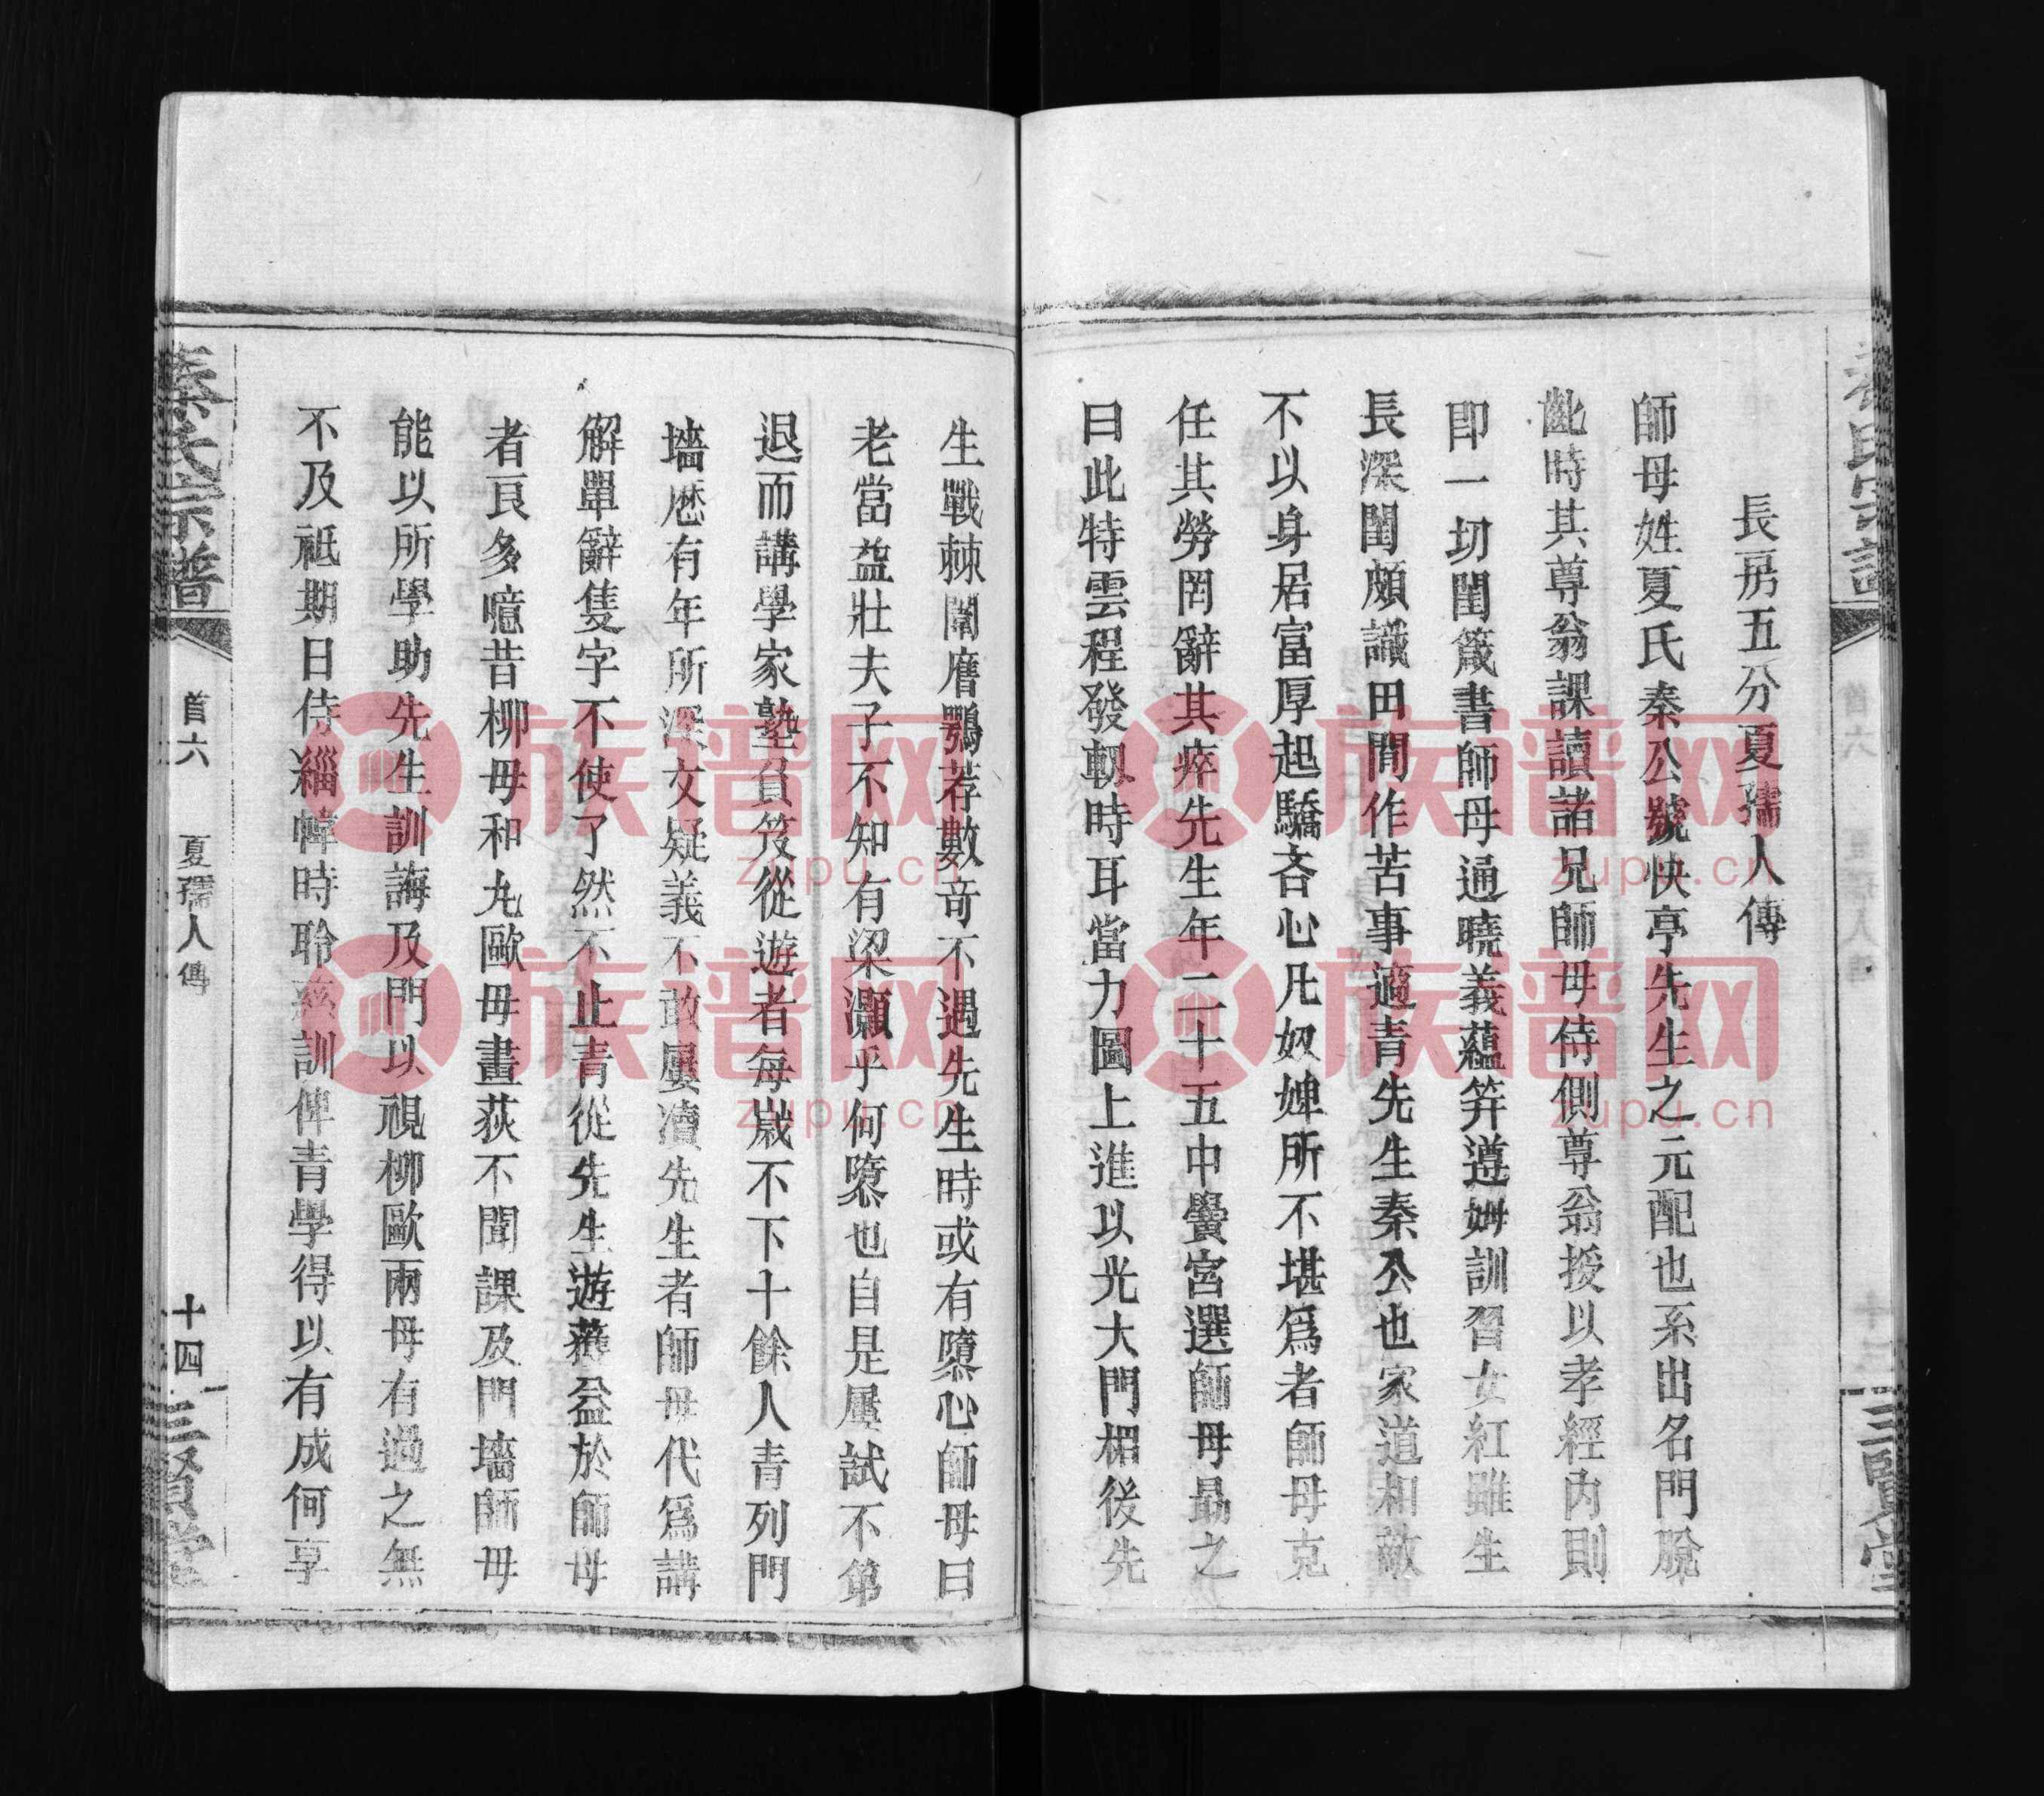 長房五分夏孺人傳
師母姓夏氏秦公號快亭先生之元配也系出名門脫
齔時其尊翁課讀諸兄師母侍側尊翁授以孝經內則
即一切閨箴書師母通曉義蘊笄遵姆訓習女紅雖生
長深閨頗識田間作苦事適青先生秦公也家道相敵
不以身居富厚起驕吝心凡奴婢所不堪爲者師母克
任其勞罔辭其瘁先生年二十五中黌宮選師母勗之
曰此特雲程發軔時耳當力圖上進以光大門楣後先
生戰棘闈膺鶚荐數竒不遇先生時或有隳心師母曰
老當益壯夫子不知有梁灝乎何隳也自是屢試不第
退而講學家塾負笈從遊者每嵗不下十餘人青列門
墻歷有年所深文疑義不敢屢凟先生者師母代爲講
解單辭隻字不使了然不止青從先生遊獲益於師母
者良多噫昔柳母和丸歐母畫荻不聞課及門墻師母
能以所學助先生訓誨及門以視柳歐兩母有過之無
不及祗期日侍緇幃時聆慈訓俾青學得以有成何享
秦氏宗譜
首六
夏孺人傳
十四
三賢堂
秦氏宗譜
三賢堂
族谱网
zupu.cn
族谱网
zupu.cn
族谱网
zupu.cn
族谱网
zupu.cn